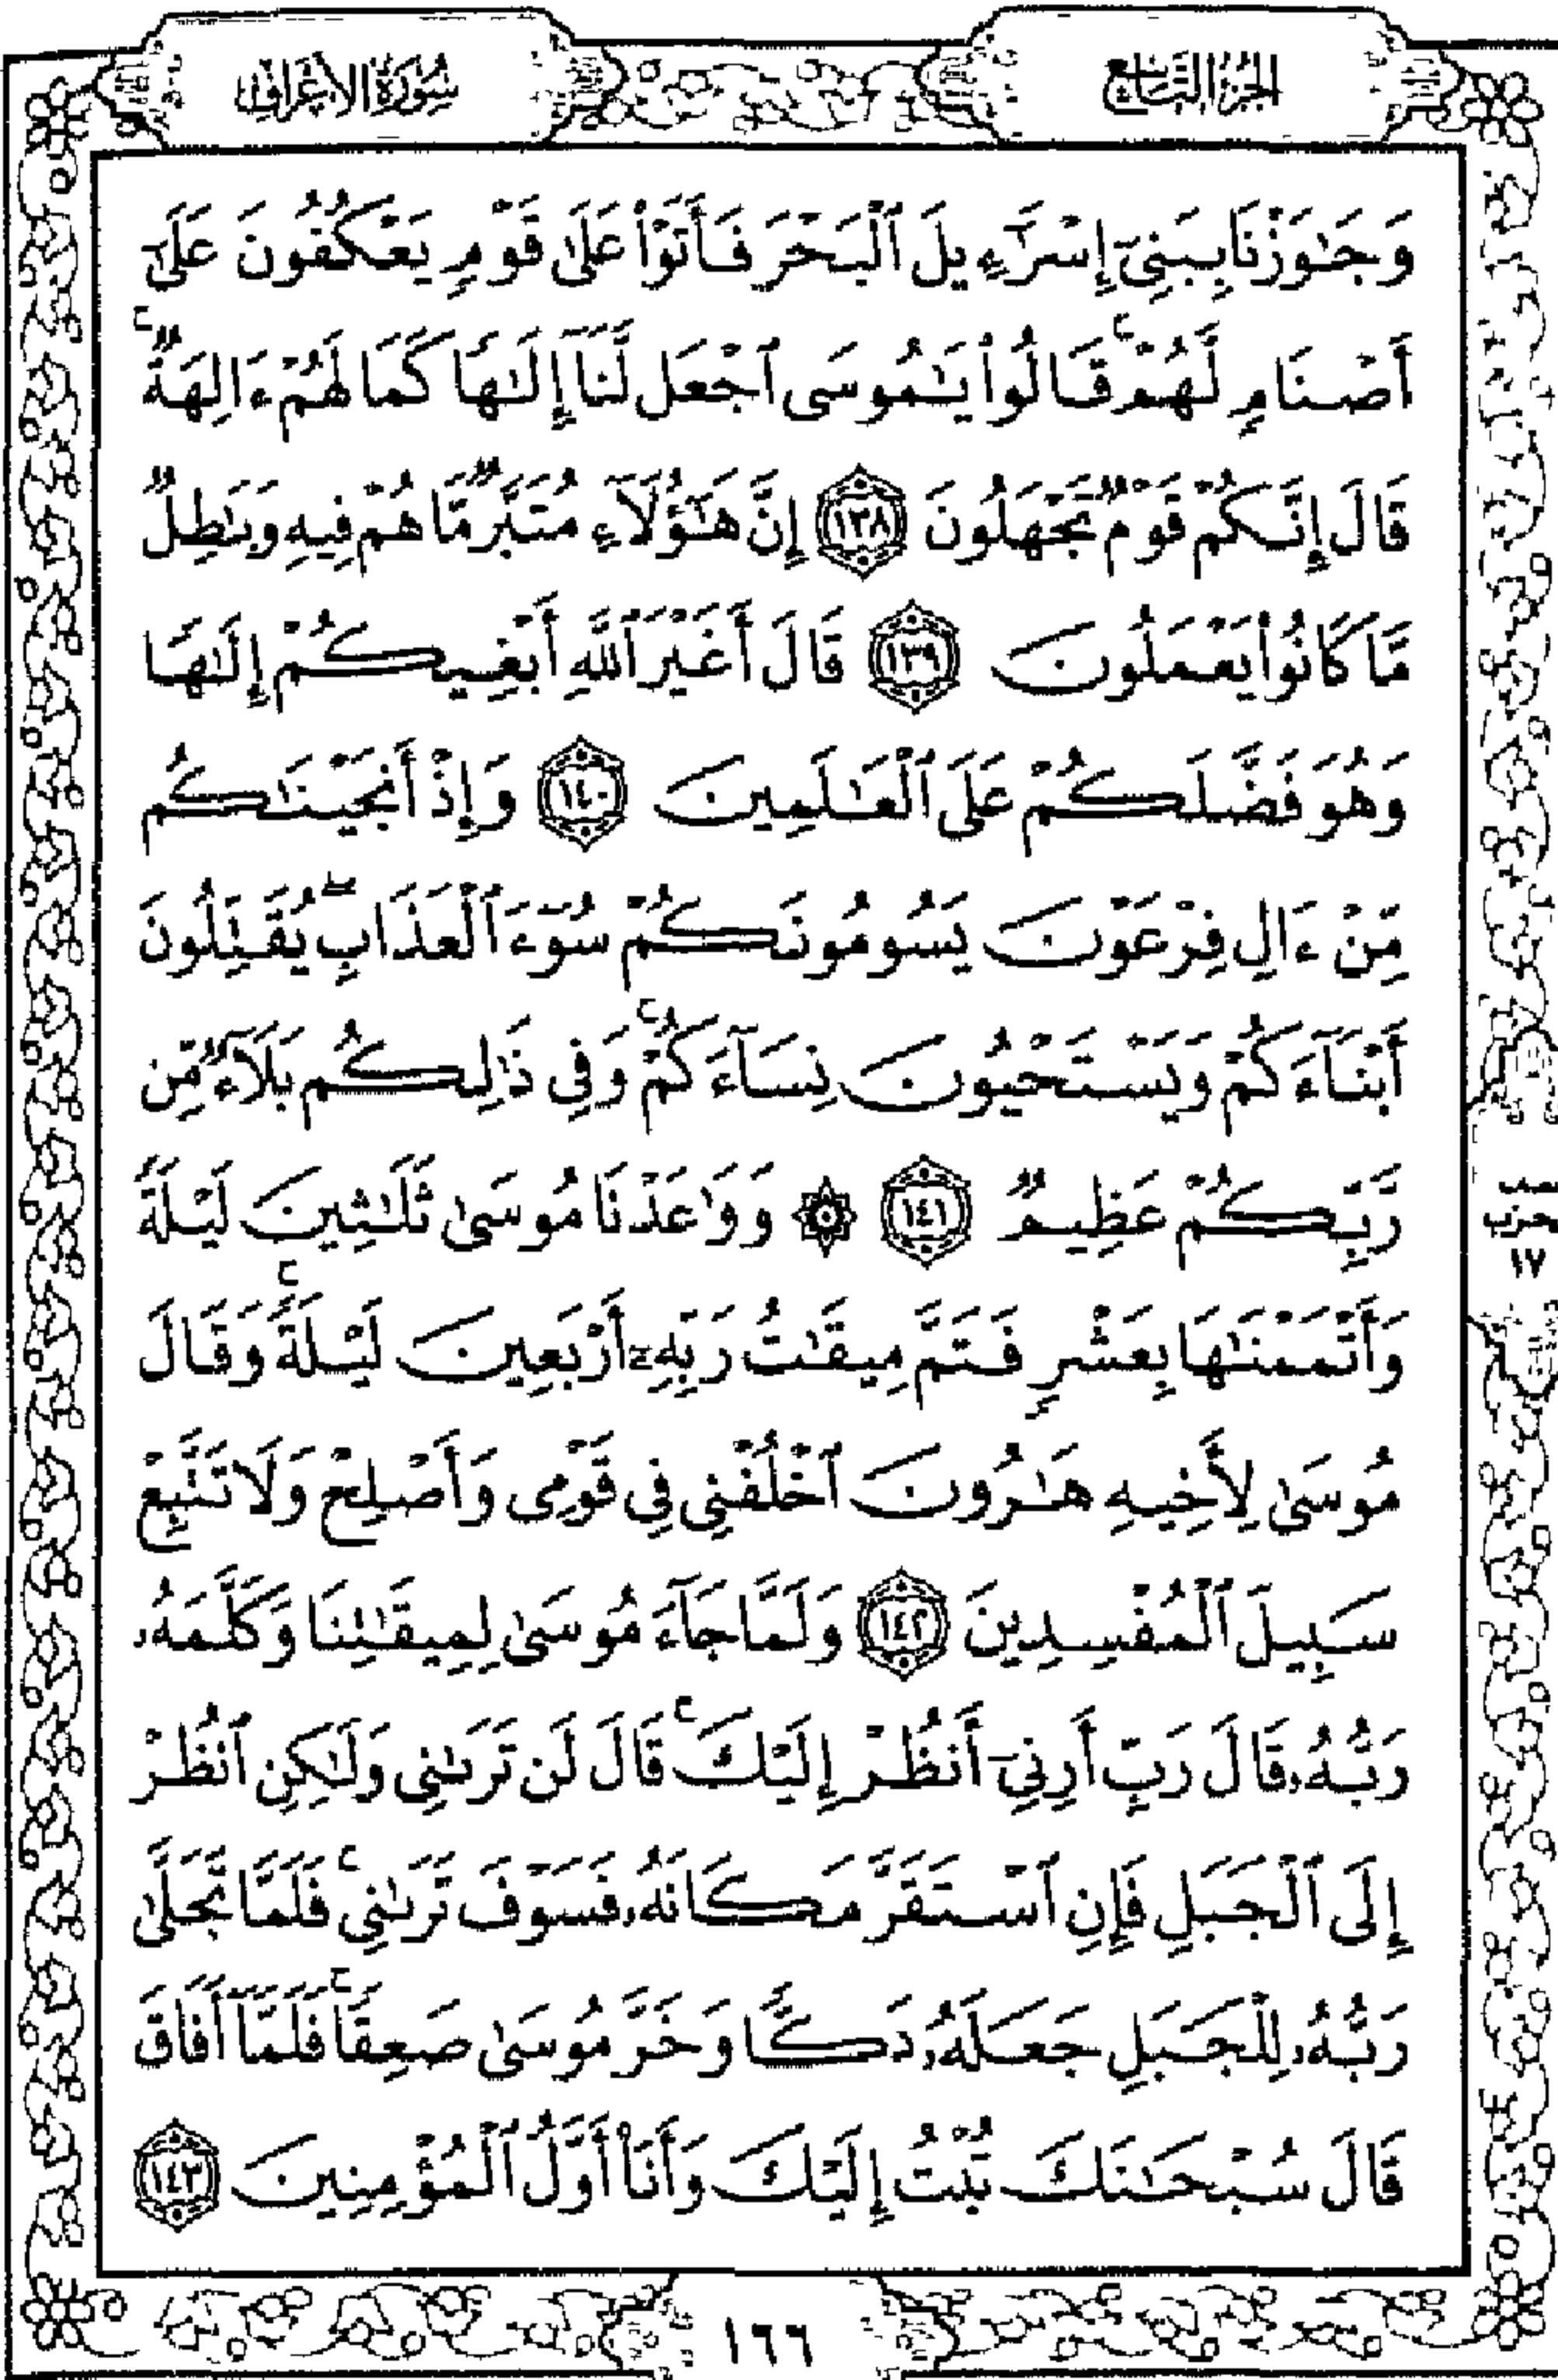 الجزء التاسع
سورة الأعراف
وَجَـٰوَزْنَا بِبَنِىٓ إِسْرَٰٓءِيلَ ٱلْبَحْرَ فَأَتَوْا۟ عَلَىٰ قَوْمٍ يَعْكُفُونَ عَلَىٰٓ
أَصْنَامٍ لَّهُمْ ۚ قَالُوا۟ يَـٰمُوسَى ٱجْعَل لَّنَآ إِلَـٰهًا كَمَا لَهُمْ ءَالِهَةٌ ۚ
قَالَ إِنَّكُمْ قَوْمٌ تَجْهَلُونَ ١٣٨ إِنَّ هَـٰٓؤُلَآءِ مُتَبَّرٌ مَّا هُمْ فِيهِ وَبَـٰطِلٌ
مَّا كَانُوا۟ يَعْمَلُونَ ١٣٩ قَالَ أَغَيْرَ ٱللَّهِ أَبْغِيكُمْ إِلَـٰهًا
وَهُوَ فَضَّلَكُمْ عَلَى ٱلْعَـٰلَمِينَ ١٤٠ وَإِذْ أَنجَيْنَـٰكُم
مِّنْ ءَالِ فِرْعَوْنَ يَسُومُونَكُمْ سُوٓءَ ٱلْعَذَابِ ۖ يُقَتِّلُونَ
أَبْنَآءَكُمْ وَيَسْتَحْيُونَ نِسَآءَكُمْ ۚ وَفِى ذَٰلِكُم بَلَآءٌ مِّن
رَّبِّكُمْ عَظِيمٌ ١٤١ ۞ وَوَٰعَدْنَا مُوسَىٰ ثَلَـٰثِينَ لَيْلَةً
وَأَتْمَمْنَـٰهَا بِعَشْرٍ فَتَمَّ مِيقَـٰتُ رَبِّهِۦٓ أَرْبَعِينَ لَيْلَةً ۚ وَقَالَ
مُوسَىٰ لِأَخِيهِ هَـٰرُونَ ٱخْلُفْنِى فِى قَوْمِى وَأَصْلِحْ وَلَا تَتَّبِعْ
سَبِيلَ ٱلْمُفْسِدِينَ ١٤٢ وَلَمَّا جَآءَ مُوسَىٰ لِمِيقَـٰتِنَا وَكَلَّمَهُۥ
رَبُّهُۥ قَالَ رَبِّ أَرِنِىٓ أَنظُرْ إِلَيْكَ ۚ قَالَ لَن تَرَىٰنِى وَلَـٰكِنِ ٱنظُرْ
إِلَى ٱلْجَبَلِ فَإِنِ ٱسْتَقَرَّ مَكَانَهُۥ فَسَوْفَ تَرَىٰنِى ۚ فَلَمَّا تَجَلَّىٰ
رَبُّهُۥ لِلْجَبَلِ جَعَلَهُۥ دَكًّا وَخَرَّ مُوسَىٰ صَعِقًا ۚ فَلَمَّآ أَفَاقَ
قَالَ سُبْحَـٰنَكَ تُبْتُ إِلَيْكَ وَأَنَا۠ أَوَّلُ ٱلْمُؤْمِنِينَ ١٤٣
حزب
١٧
١٦٦